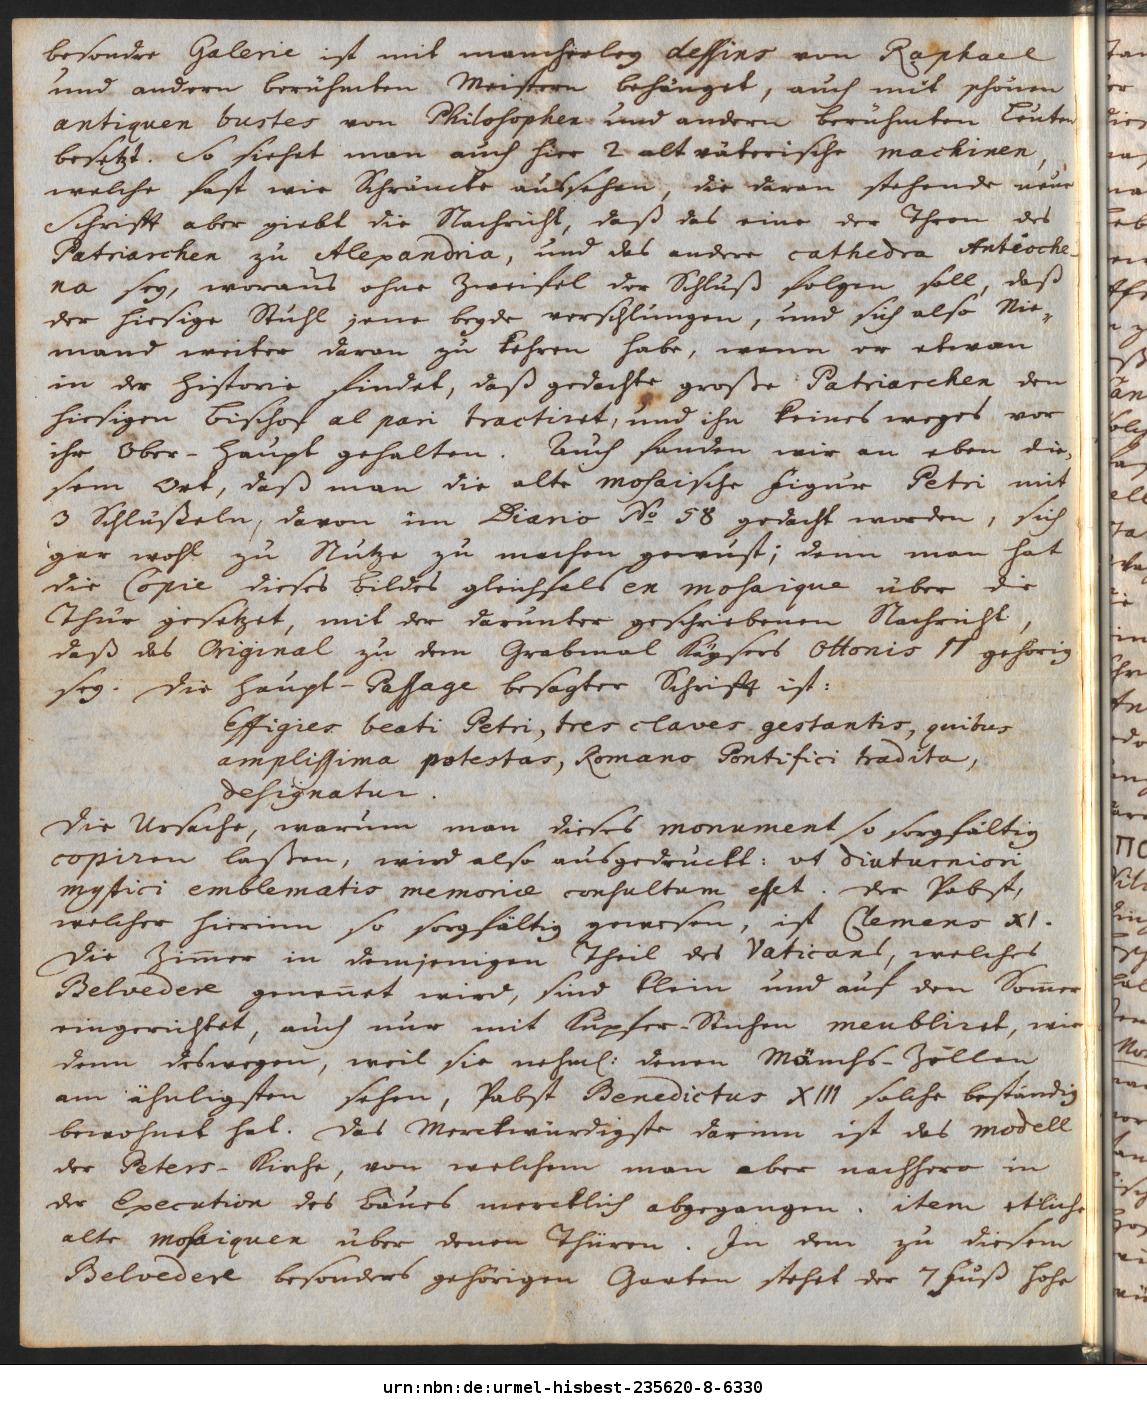 besondre Galerie ist mit mancherley dessins von Raphael
und andern berühmten Meistern behänget, auch mit schönen
antiquen bustes von Philosophen und andern berühmten Leuten
besetzt. So siehet man auch hier 2 alt väterische machinen,
welche fast wie Schräncke aussehen, die daran stehende neue
Schrifft aber giebt die Nachricht, daß das eine der Thron des
Patriarchen zu Alexandria, und das andere cathedra Antioche-
na sey, woraus ohne Zweifel der Schluß folgen soll, daß
der hiesige Stuhl jene beyde verschlungen, und sich also Nie-
mand weiter daran zu kehren habe, wenn er etwan
in der Historie findet, daß gedachte große Patriarchen den
hiesigen Bischof al pari tractiret, und ihn keines weges vor
ihr Ober-Haupt gehalten. Auch fanden wir an eben die-
sem Ort, daß man die alte mosaische Figur Petri mit
3 Schlüßeln, davon im Diario No 58 gedacht worden, sich
gar wohl zu Nutze zu machen gewust; denn man hat
die Copie dieses Bildes gleichfals en mosaique über die
Thür gesetzet, mit der darunter geschriebenen Nachricht,
daß das Original zu dem Grabmal Kaysers Ottonis II gehörig
sey. Die Haupt-Passage besagter Schrifft ist:
Effigies beati Petri, tres claves gestantis, quibus
amplissima potestas, Romano Pontifici tradita,
designatur.
Die Ursache, warum man dieses monument so sorgfältig
copiren laßen, wird also ausgedruckt: ut diuturniori
mystici emblematis memoriæ consultum esset. Der Pabst,
welcher hierinn so sorgfältig gewesen, ist Clemens XI.
Die Zimmer in demjenigen Theil des Vaticans, welches
Belvedere genennet wird, sind klein und auf den Sommer
eingerichtet, auch nur mit Kupfer-Stichen meubliret, wie
denn deswegen, weil sie nehml: denen Mönchs-Zellen
am ähnligsten sehen, Pabst Benedictus XIII solche beständig
bewohnet hat. Das Merckwürdigste darinn ist das modell
der Peters-Kirche, von welchem man aber nachhero in
der Execution des Baues mercklich abgegangen. item etliche
alte mosaiquen über denen Thüren. In dem zu diesem
Belvedere besonders gehörigen Garten stehet der 7 Fuß hohe
urn:nbn:de:urmel-hisbest-235620-8-6330